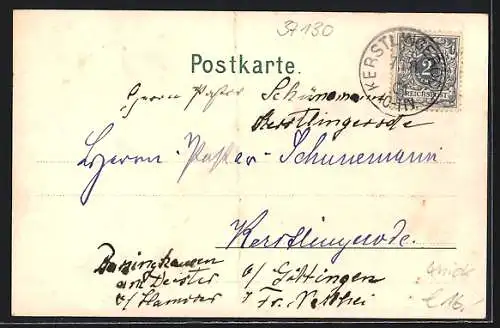 37130
Postkarte.
KERSTLINGERODE
10-11V.
2
REICHSPOST
Herrn Pastor Schünemann
Kerstlingerode
Herrn Pastor Schünemann
Kerstlingerode.
Barsinghausen
am Deister
b/ Hannover
b/ Göttingen